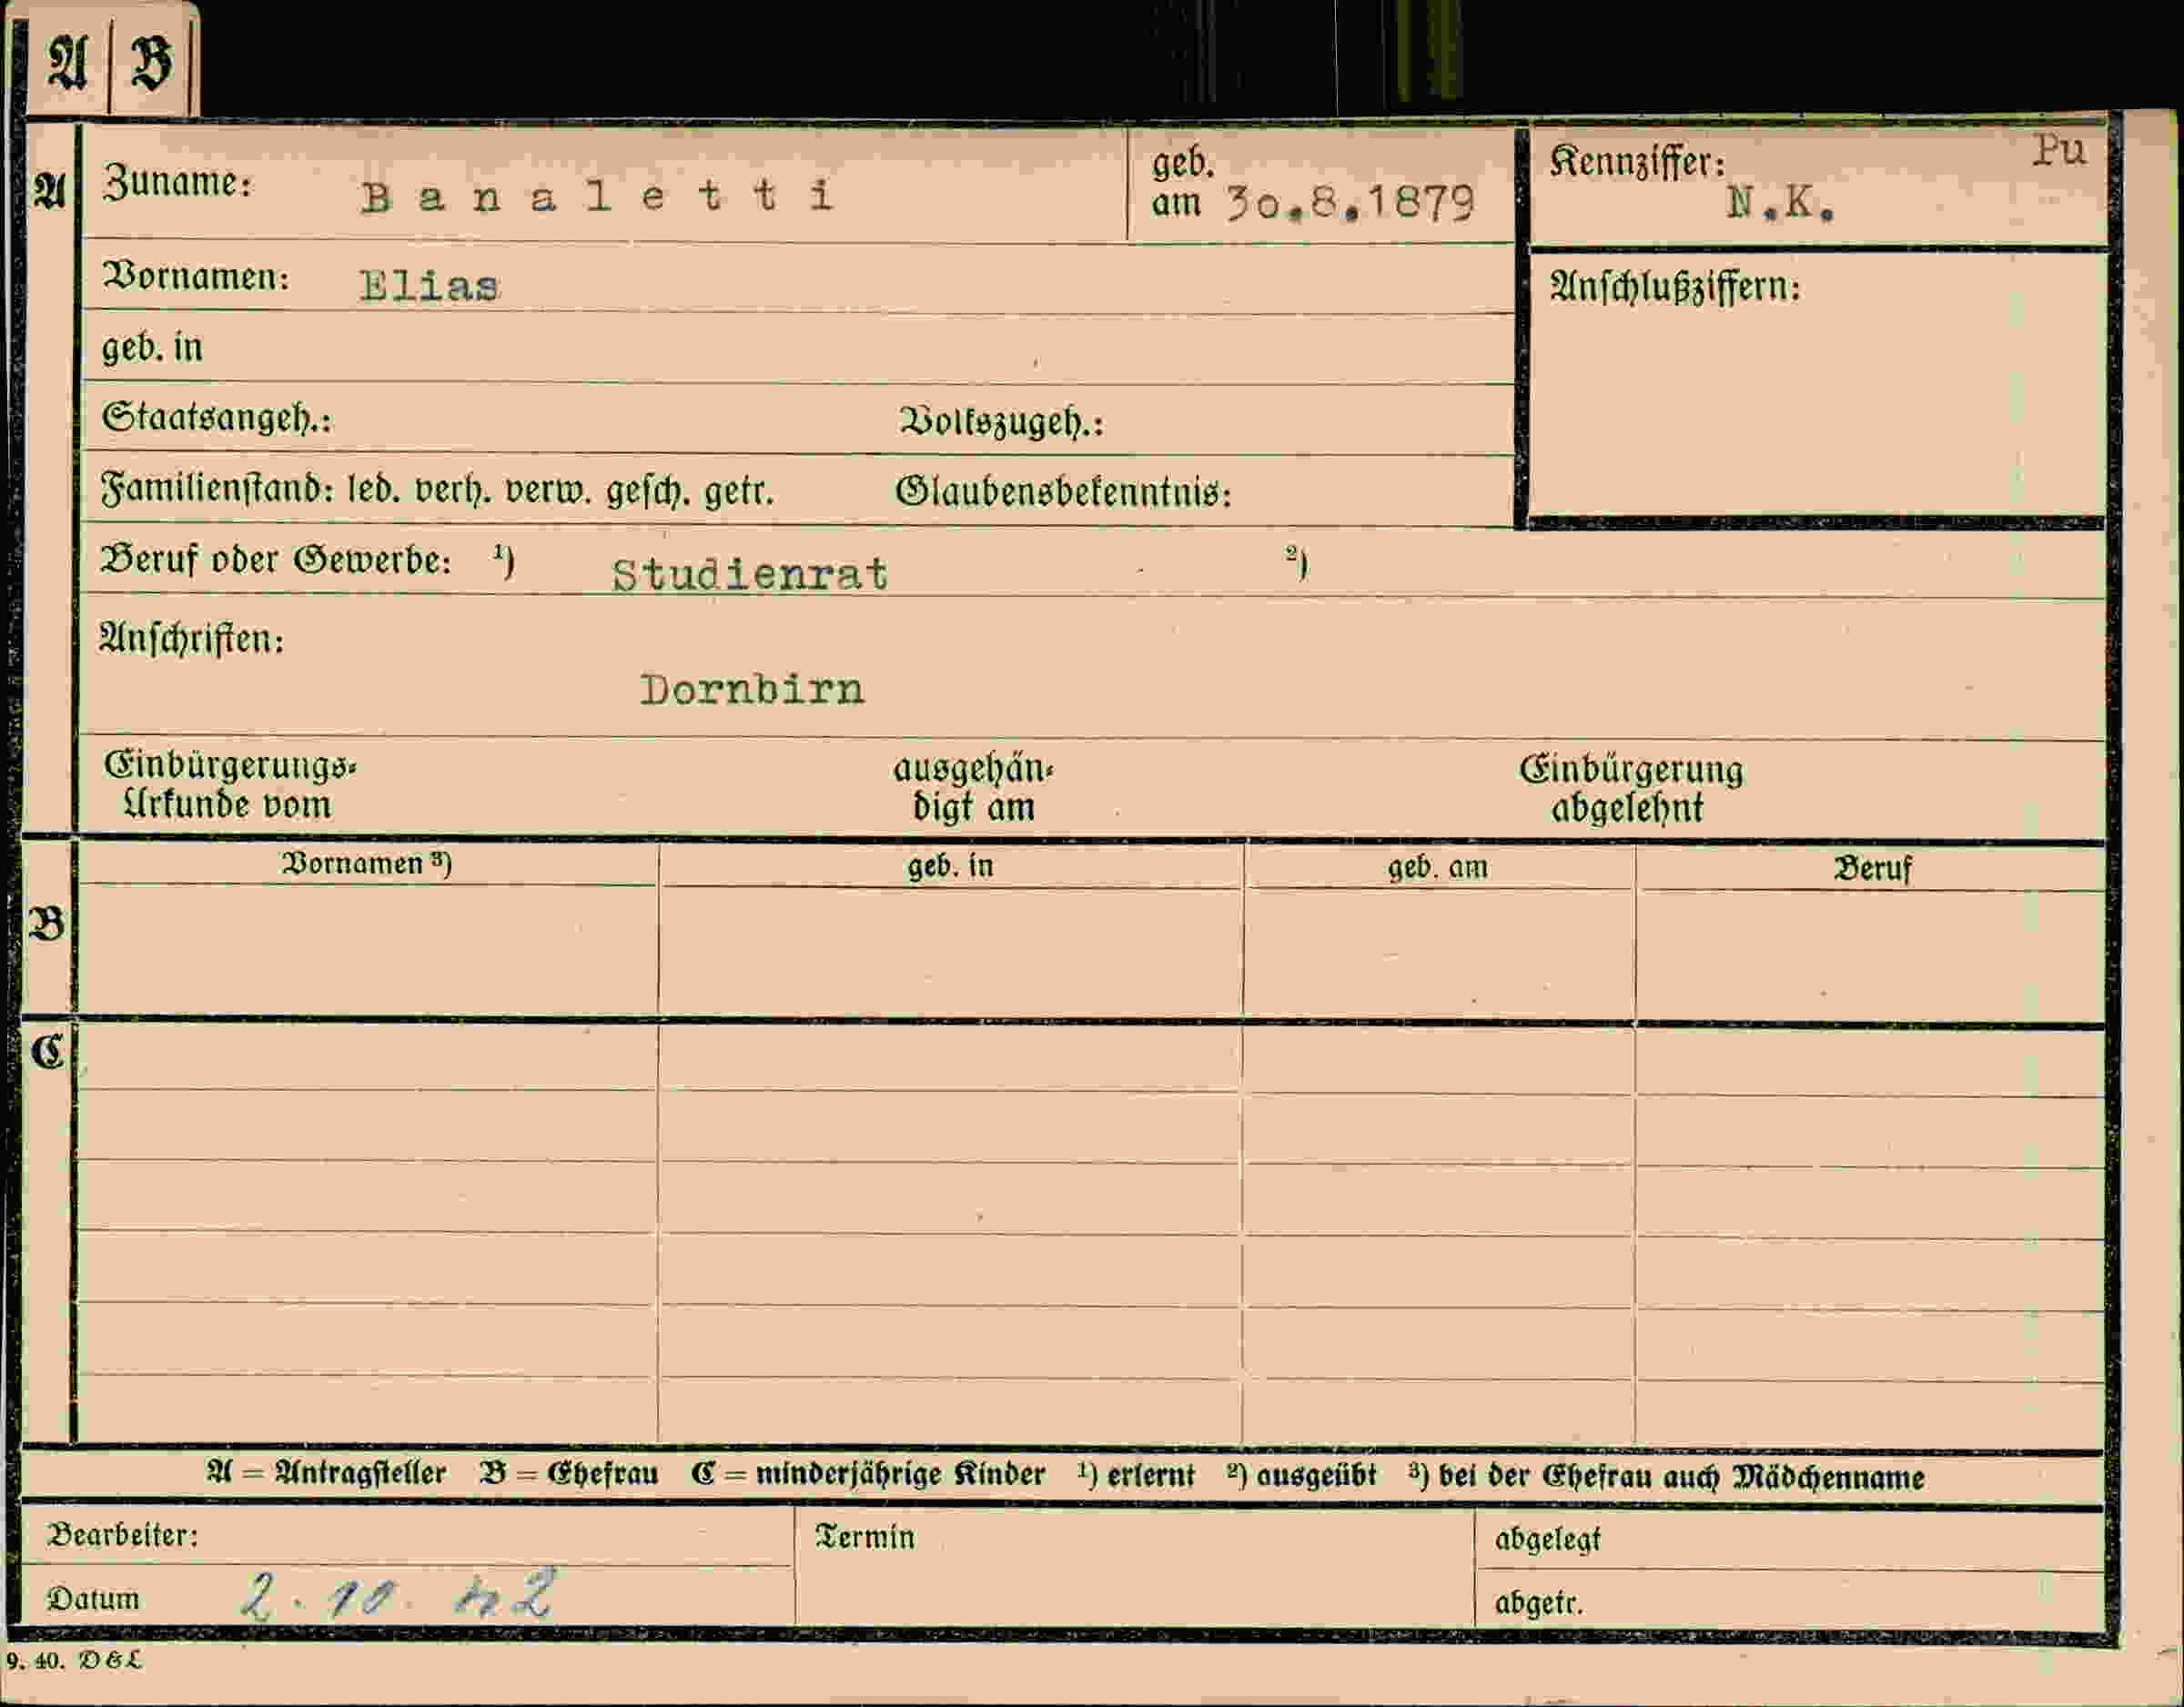 A B
A Zuname: Banaletti geb. am 30.8.1879 Kennziffer: N.K. Pu
Vornamen: Elias Anschlußziffern:
geb. in
Staatsangeh.: Volkszugeh.:
Familienstand: led. verh. verw. gesch. getr. Glaubensbekenntnis:
Beruf oder Gewerbe: ¹) Studienrat ²)
Anschriften:
Dornbirn
Einbürgerungs- ausgehän- Einbürgerung
Urkunde vom digt am abgelehnt
Vornamen ³) geb. in geb. am Beruf
B
C
A = Antragsteller B = Ehefrau C = minderjährige Kinder ¹) erlernt ²) ausgeübt ³) bei der Ehefrau auch Mädchenname
Bearbeiter: Termin abgelegt
Datum 2.10.42 abgetr.
9. 40. D & L